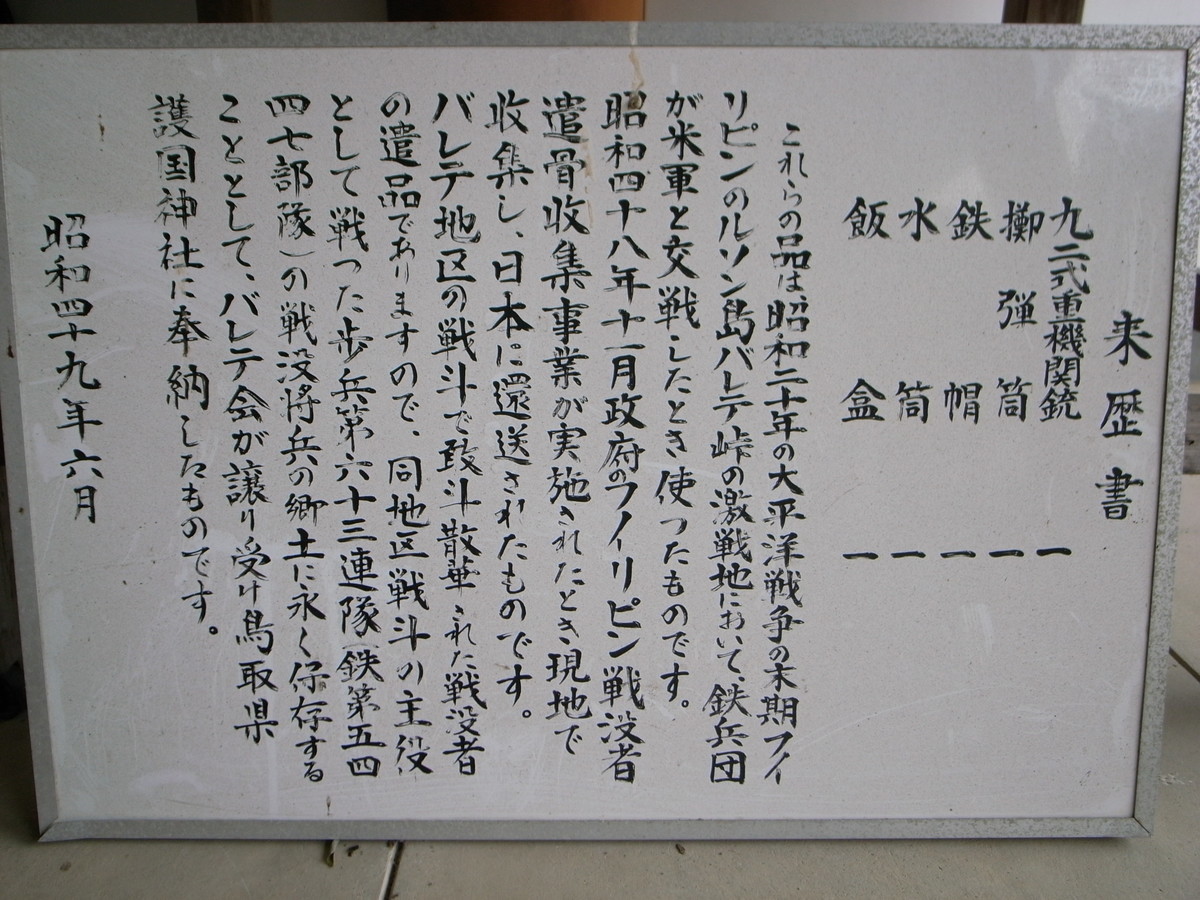 来歴書
九二式重機関銃 一
擲弾筒 一
鉄帽 一
水筒 一
飯盒 一
これらの品は、昭和二十年の大平洋戦争の末期フィ
リピンのルソン島バレテ峠の激戦地において、鉄兵団
が米軍と交戦したとき使つたものです。
昭和四十八年十一月政府のフィリピン戦没者
遺骨収集事業が実施されたとき現地で
収集し、日本に還送されたものです。
バレテ地区の戦斗で敢斗散華された戦没者
の遺品でありますので、同地区戦斗の主役
として戦った歩兵第六十三連隊(鉄第五四
四七部隊)の戦没将兵の郷土に永く保存する
こととして、バレテ会が譲り受け鳥取県
護国神社に奉納したものです。
昭和四十九年六月